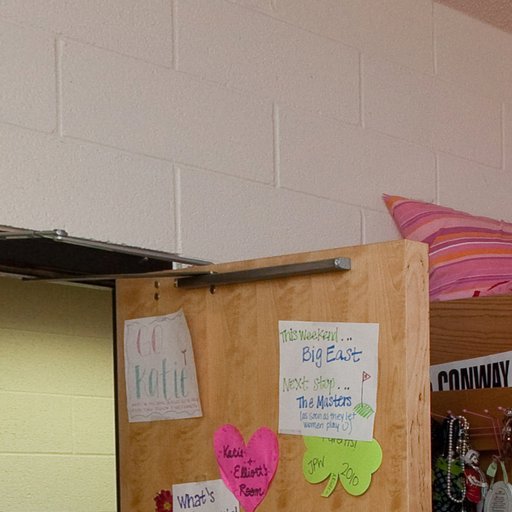 GO
Katie
This Weekend...
Big East
Next stop...
The Masters
(as soon as they let
women play)
CONWAY
-Katie
+
Elliott's
Room
JPW
2010
What's